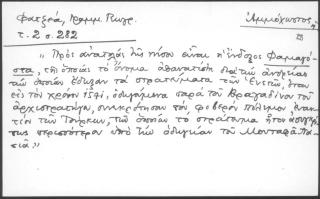 Φατζεᾶ, Γραμμ. Γεωγρ. Ἀμμόχωστος
τ. 2 σ. 282
"Πρὸς ἀνατολὰς τῆς νήσου εἶναι ἡ ἔνδοξος Φαμαγό-
στα, τῆς ὁποίας τὸ ὄνομα ἀθανατίζει διὰ τῶν ἀνδρείας
τῶν ὁποίων ἔδειξαν τὰ στρατεύματα τῶν Ἑνετῶν, ὅταν
εἰς τοὺς χρόνους 1571, ὁδηγούμενα παρὰ τοῦ Βραγαδίνου τοῦ
ἀρχιστρατήγου, συνεκρότησαν τὸν φοβερὸν πόλεμον, ἐναν-
τίον τῶν Τούρκων, τῶν ὁποίων τὸ στράτευμα ἦτον
περισσότερον ὑπὸ τὴν ὁδηγίαν τοῦ Μουσταφᾶ Πα-
σιᾶ"